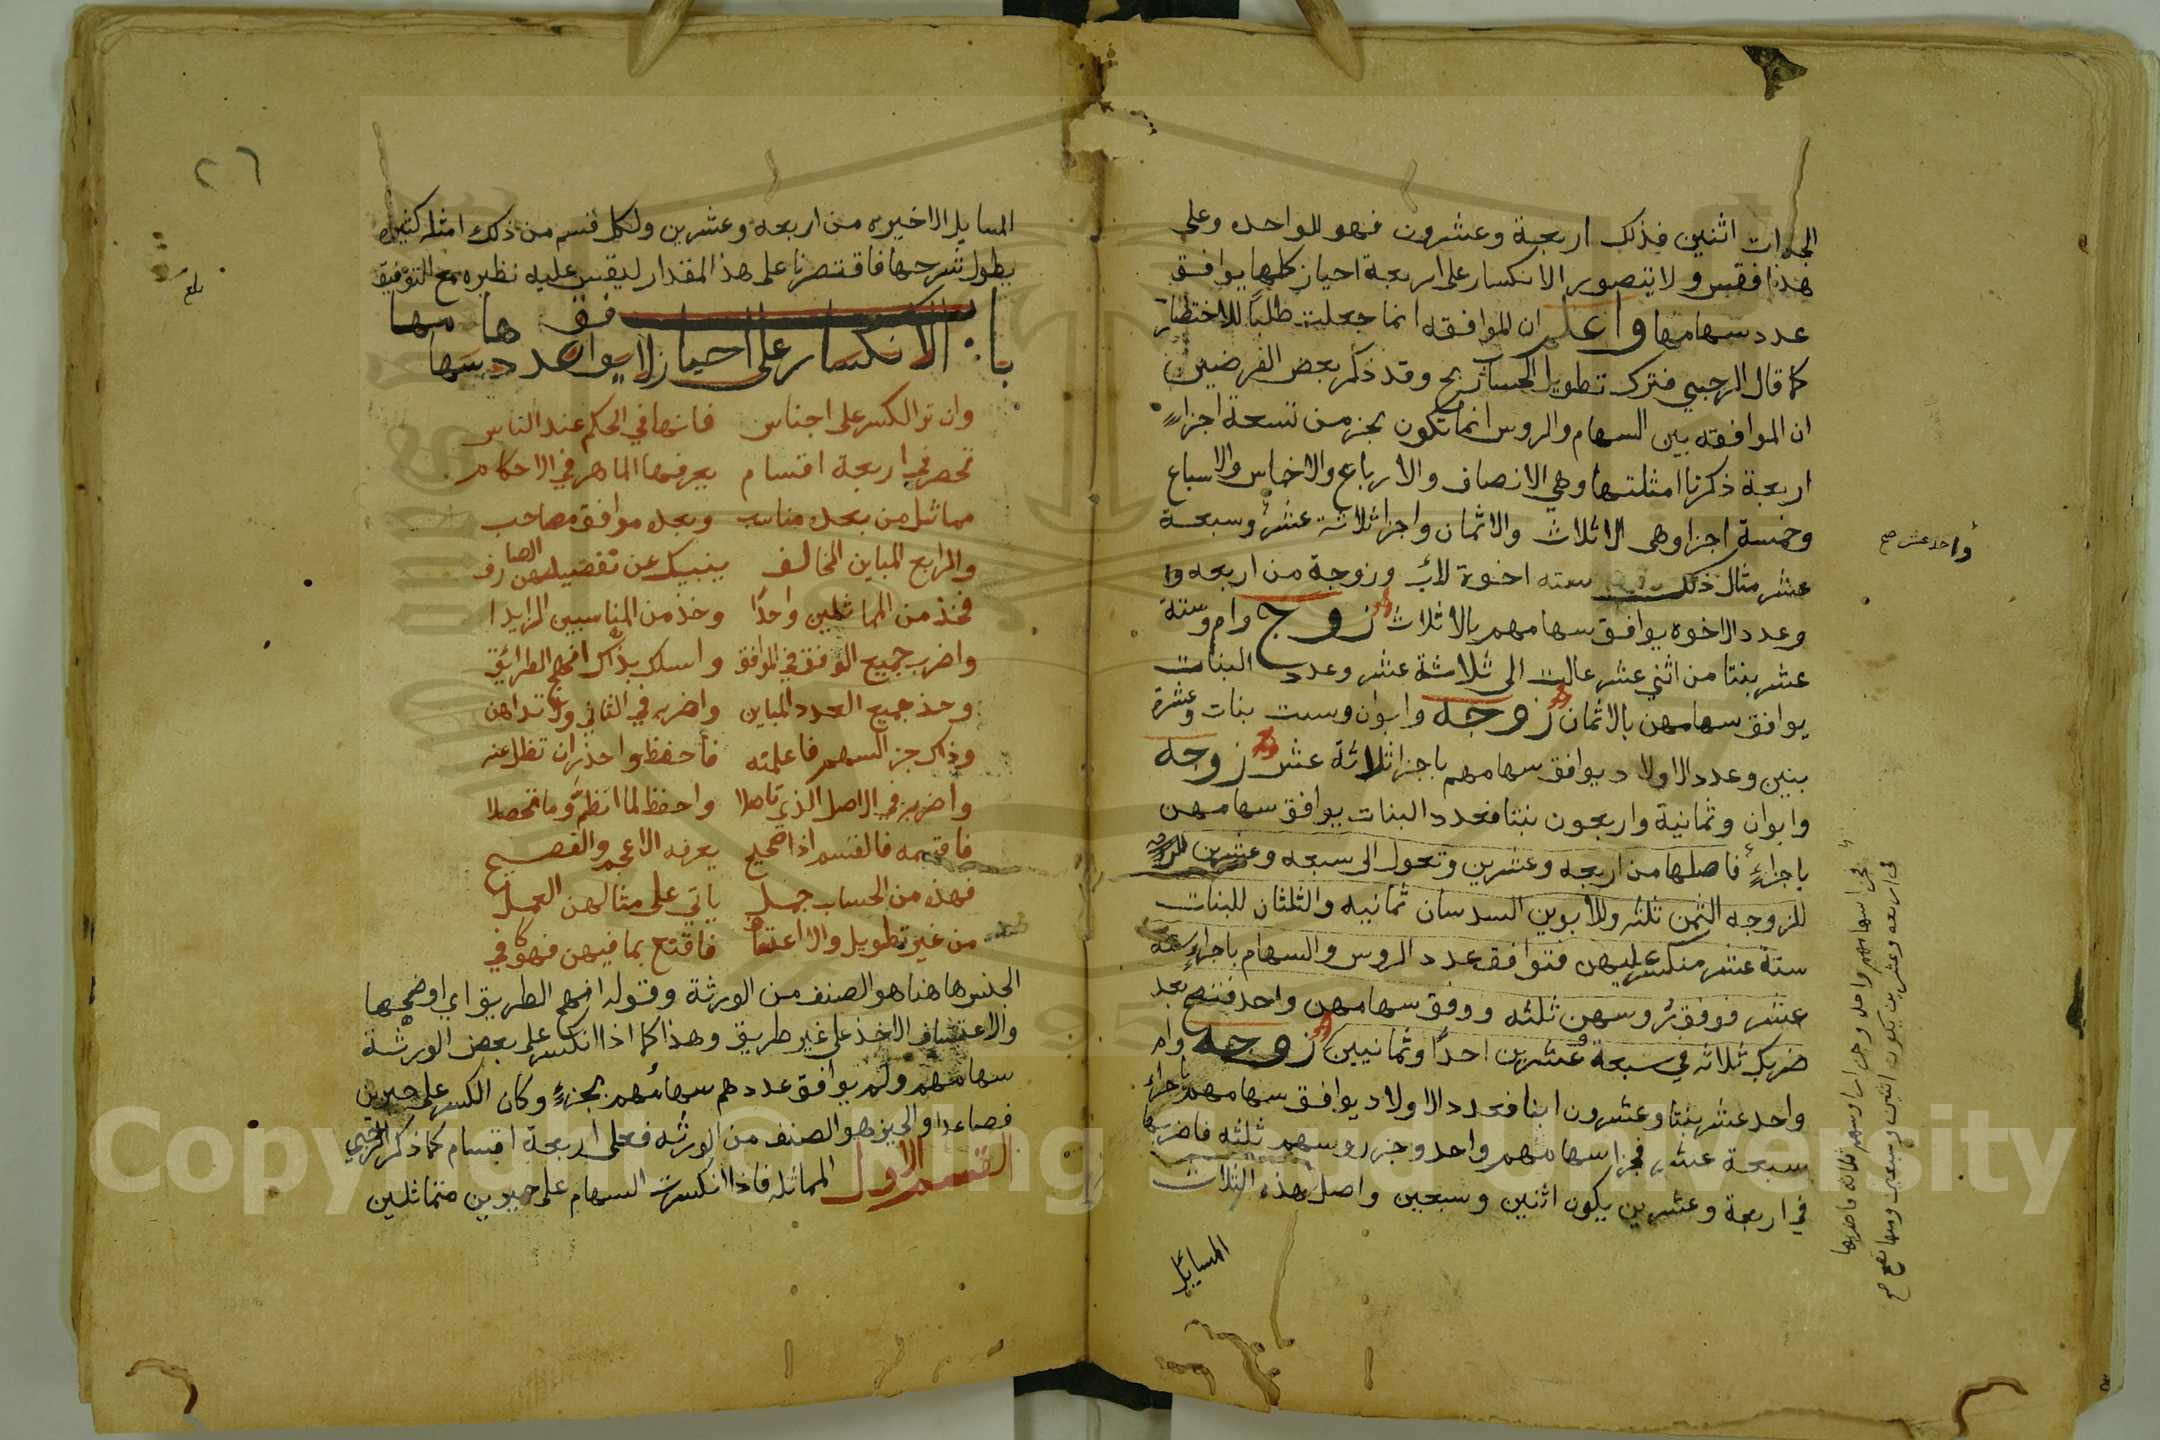 الجدات اثنين فذلك اربعة وعشرون فهو للواحده وعلى
هذا فقس ولا يتصور الانكسار على اربعة احياز كلها يوافق
عدد سهامها واعلم ان الموافقه انما جعلت طلبًا للاختصار
كما قال الرحبي فترك تطويل الحساب ربح وقد ذكر بعض الفرضيين
ان الموافقه بين السهام والروس انما تكون بجز من تسعة اجزاء
اربعة ذكرنا امثلتها وهي الانصاف والارباع والاخماس والاسباع
وخمسة اجزا وهي الاثلاث والاثمان واجزا ثلاثة عشر وسبعة
واحد عشر صح
عشر مثال ذلك سته اخوة لاب وزوجة من اربعه
وعدد الاخوه يوافق سهامهم بالاثلاث زوج وام وستة
عشر بنتا من اثني عشر عالت الى ثلاثة عشر وعدد البنات
يوافق سهامهن بالاثمان زوجه وابوان وست بنات وعشرة
بنين وعدد الاولاد يوافق سهامهم باجزا ثلاثة عشر زوجه
وابوان وثمانية واربعون بنتا فعدد البنات يوافق سهامهن
باجزاء فاصلها من اربعه وعشرين وتعول الى سبعه وعشرين
للزوجه الثمن ثلثه وللابوين السدسان ثمانيه والثلثان للبنات
ستة عشر منكسر عليهن فتوافق عدد الروس والسهام باجزاء ستة
عشر فوفق رؤسهن ثلثه ووفق سهامهن واحد فتصح بعد
ضربك ثلاثه في سبعة وعشرين احدًا وثمانيين زوجه وام
واحد عشر بنتا وعشرون ابنا فعدد الاولاد يوافق سهامهم باجزاء
سبعة عشر فجزا سهامهم واحد وجز روسهم ثلثه فاضربها
في اربعة وعشرين يكون اثنين وسبعين واصل هذه الثلاث
المسائل
فجزا سهامهم واحد وجزا روسهم ثلاثه فاضربها
في اربعه وعشرين يكون اثنين وسبعين ومنها تصح صح
٢٦
المسايل الاخيره من اربعه وعشرين ولكل قسم من ذلك امثله كثيره
يطول شرحها فاقتصرنا على هذا المقدار ليقس عليه نظيره مع التوفيق
بلغ
باب الانكسار على احياز لا يوافق عددها سهامها
وان تر الكسر على اجناس فانها في الحكم عند الناس
تحصر في اربعة اقسام يعرفها الماهر في الاحكام
مماثل من بعده مناسب وبعده موافق مصاحب
والرابع المباين المخالف ينبيك عن تفصيلهن العارف
فخذ من المماثلين واحدًا وخذ من المناسبين الزايدا
واضرب جميع الوفق في الموافق واسلك بذاك انهج الطرائق
وخذ جميع العدد المباين واضربه في الثاني ولا تداهن
وذاك جز السهم فاعلمنه فاحفظ واحذر ان تظل عنه
واضربه في الاصل الذي تاصلا واحفظ لما انظم وما تحصلا
فاقسمه فالقسم اذا صحيح يعرفه الاعجم والفصيح
فهذه من الحساب جمل ياتي على مثالهن العمل
من غير تطويل ولا اعتساف فاقنع بما فيهن فهو كافي
الجنس هاهنا هو الصنف من الورثة وقوله انهج الطريق اي اوضحها
والاعتساف الاخذ على غير طريق وهذا كما اذا انكسر على بعض الورثة
سهامهم ولم يوافق عددهم سهامهم بجزء وكان الكسر على حيزين
فصاعدا والحيز هو الصنف من الورثه فعلى اربعة اقسام كما ذكر الرحبي
القسم الاول المماثله فاذا انكسرت السهام على حيزين متماثلين
Copyright © King Saud University